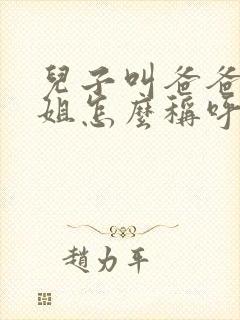 兒子叫爸爸
姐怎麼稱呼
趙力平